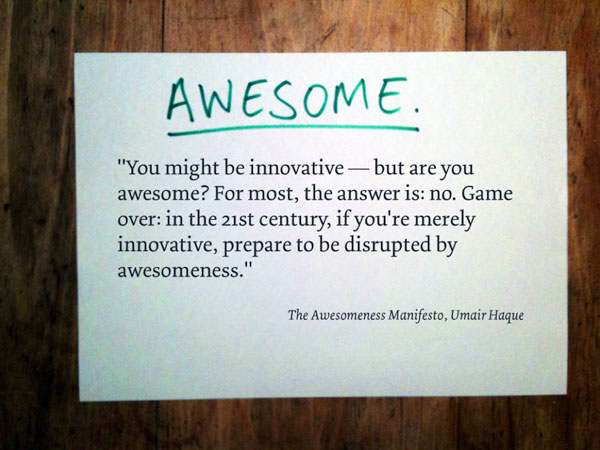 AWESOME.
"You might be innovative — but are you
awesome? For most, the answer is: no. Game
over: in the 21st century, if you're merely
innovative, prepare to be disrupted by
awesomeness."
The Awesomeness Manifesto, Umair Haque